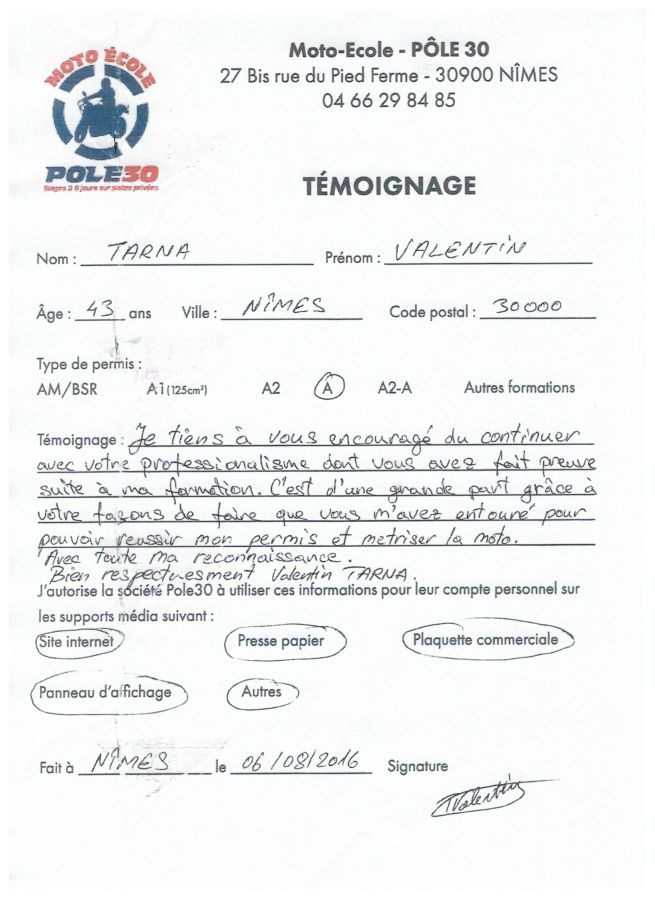 MOTO ÉCOLE
POLE30
Stages 3-5 jours sur pistes privées
Moto-Ecole - PÔLE 30
27 Bis rue du Pied Ferme - 30900 NÎMES
04 66 29 84 85
TÉMOIGNAGE
Nom : TARNA Prénom : VALENTIN
Âge : 43 ans Ville : NÎMES Code postal : 30000
Type de permis :
AM/BSR A1 (125cm³) A2 A A2-A Autres formations
Témoignage : Je tiens à vous encouragé du continuer
avec votre professionalisme dont vous avez fait preuve
suite à ma formation. C'est d'une grande part grâce à
votre façons de faire que vous m'avez entouré pour
pouvoir reussir mon permis et metriser la moto.
Avec toute ma reconnaissance.
Bien respectuesment Valentin TARNA.
J'autorise la société Pole30 à utiliser ces informations pour leur compte personnel sur
les supports média suivant :
Site internet Presse papier Plaquette commerciale
Panneau d'affichage Autres
Fait à NÎMES le 06/08/2016 Signature
TValentin